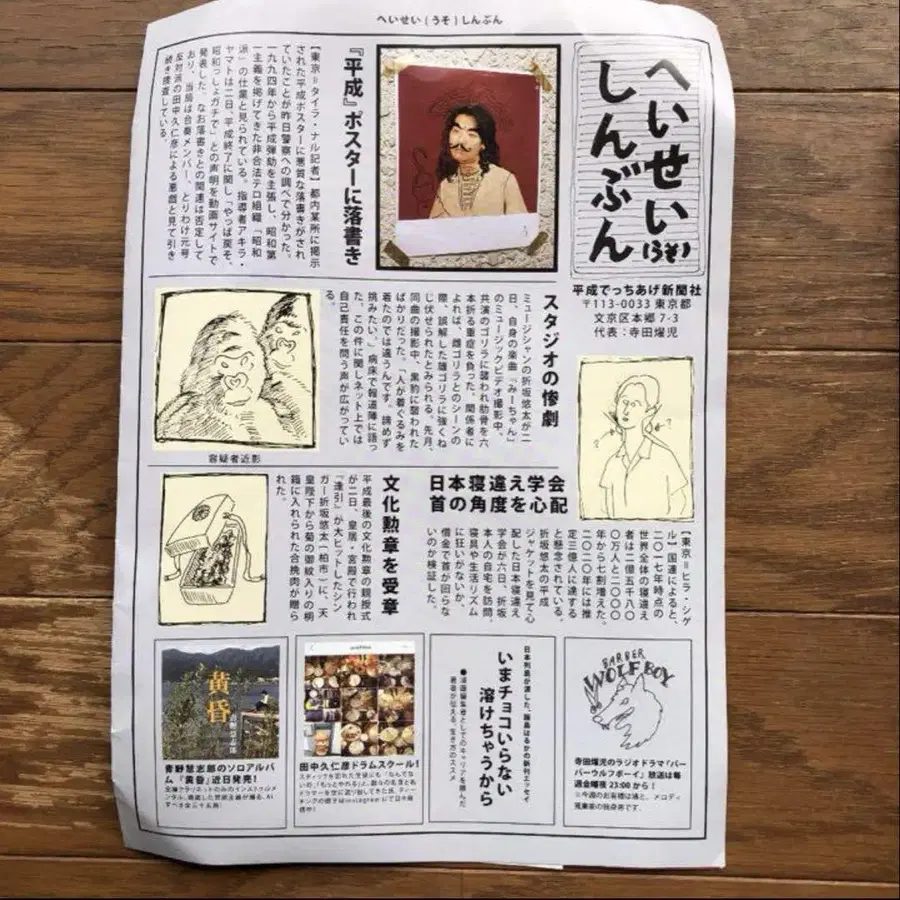 へいせい(うそ)しんぶん
へいせい(うそ)
しんぶん
平成でっちあげ新聞社
〒113-0033 東京都
文京区本郷 7-3
代表：寺田燿児
『平成』ポスターに落書き
【東京=タイラ・ナル記者】都内某所に掲示
された平成ポスターに悪質な落書きがされ
ていたことが昨日警察への調べで分かった。
一九九四年から平成弾劾を主張し、昭和第
一主義を掲げてきた非合法テロ組織「昭和
派」の仕業と見られている。指導者アキラ・
ヤマトは二日、平成終了に関し「やっぱ戻そ、
昭和っしょガチで」との声明を動画サイトで
発表した。なお落書きとの関連は否定して
おり、当局は合奏メンバー、とりわけ元号
反対派の田中久仁彦による悪戯と見て引き
続き捜査している。
スタジオの惨劇
ミュージシャンの折坂悠太が二
日、自身の楽曲『みーちゃん』
のミュージックビデオ撮影中、
共演のゴリラに襲われ肋骨を六
本折る重症を負った。関係者に
よれば、雌ゴリラとのシーンの
際、誤解した雄ゴリラに強くね
じ伏せられたとみられる。先月、
同曲の撮影中、黒豹に襲われた
ばかりだった。「人が着ぐるみを
着たのでは違うんです。諦めず
挑みたい。」病床で報道陣に語っ
た。この件に関しネット上では
自己責任を問う声が広がってい
る。
容疑者近影
日本寝違え学会
首の角度を心配
【東京=ヒラ・シゲ
ル】国連によると、
二〇一七年時点の
世界全体の寝違え
者は二億五千八百
〇万人と二〇〇〇
年から七割増えた。
二〇二〇年には推
定三億人に達する
と懸念されている。
折坂悠太の平成
ジャケットを見て心
配した日本寝違え
学会が六日、折坂
本人の自宅を訪問、
寝具や生活リズム
に狂いがないか、
借金で首が回らな
いのか検証した。
文化勲章を受章
平成最後の文化勲章の親授式
が二日、皇居・宮殿で行われ
『逢引』が大ヒットしたシン
ガー折坂悠太（柏市）に、天
皇陛下から菊の御紋入りの桐
箱に入れられた合挽肉が贈ら
れた。
BARBER
WOLF BOY
寺田燿児のラジオドラマ「バー
バーウルフボーイ」放送は毎
週金曜夜 23:00 から！
日本列島が涙した、飯島はるかの新刊エッセイ
いまチョコいらない
溶けちゃうから
田中久仁彦ドラムスクール！
黄昏
青野慧志郎のソロアルバ
ム『黄昏』近日発売！